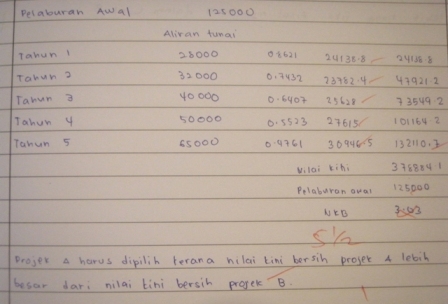 Pelaburan Awal 125000
Aliran tunai
Tahun 1 28000 0.8621 24138.8 24138.8
Tahun 2 32000 0.7432 23782.4 47921.2
Tahun 3 40000 0.6407 25628 73549.2
Tahun 4 50000 0.5523 27615 101164.2
Tahun 5 65000 0.4761 30946.5 132110.7
Nilai kini
Pelaburan awal 125000
NKB
5 1/2
Projek A harus dipilih kerana nilai kini bersih projek A lebih
besar dari nilai kini bersih projek B.